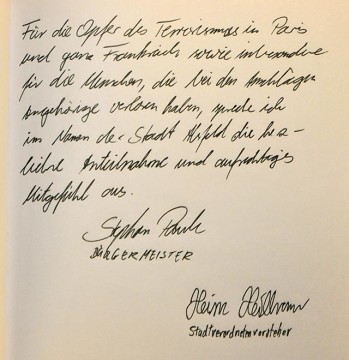 Für die Opfer des Terrorismus in Paris
und ganz Frankreich sowie insbesondere
für die Menschen, die bei den Anschlägen
Angehörige verloren haben, spreche ich
im Namen der Stadt Alsfeld die herz-
liche Anteilnahme und aufrichtiges
Mitgefühl aus.
Stephan Paule
BÜRGERMEISTER
Heinz Heilbronn
Stadtverordnetenvorsteher